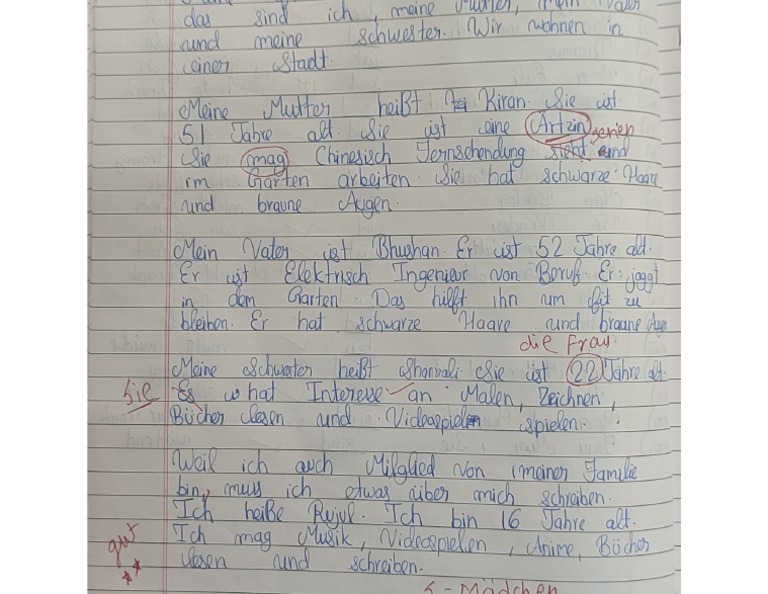 das sind ich, meine Mutter, mein Vater
und meine schwester. Wir wohnen in
einer Stadt.
Meine Mutter heißt Kiran. Sie ist
51 Jahre alt. Sie ist eine Artzin
serien
Sie mag Chinesisch Fernschendung sieht und
im Garten arbeiten. Sie hat schwarze Haare
und braune Augen.
Mein Vater ist Bhushan. Er ist 52 Jahre alt.
Er ist Elektrisch Ingenieur von Beruf. Er joggt
in dem Garten. Das hilft ihn um fit zu
bleiben. Er hat schwarze Haare und braune
die Frau.
Meine schwester heißt Sharvali. Sie ist 22 Jahre alt.
Sie Es hat Interesse an Malen, Zeichnen,
Bücher lesen und Videospielen spielen.
Weil ich auch Mitglied von meiner Familie
bin, muss ich etwas über mich schreiben.
Ich heiße Rujul. Ich bin 16 Jahre alt.
gut Ich mag Musik, Videospielen, Anime, Bücher
lesen und schreiben.
s - Mädchen